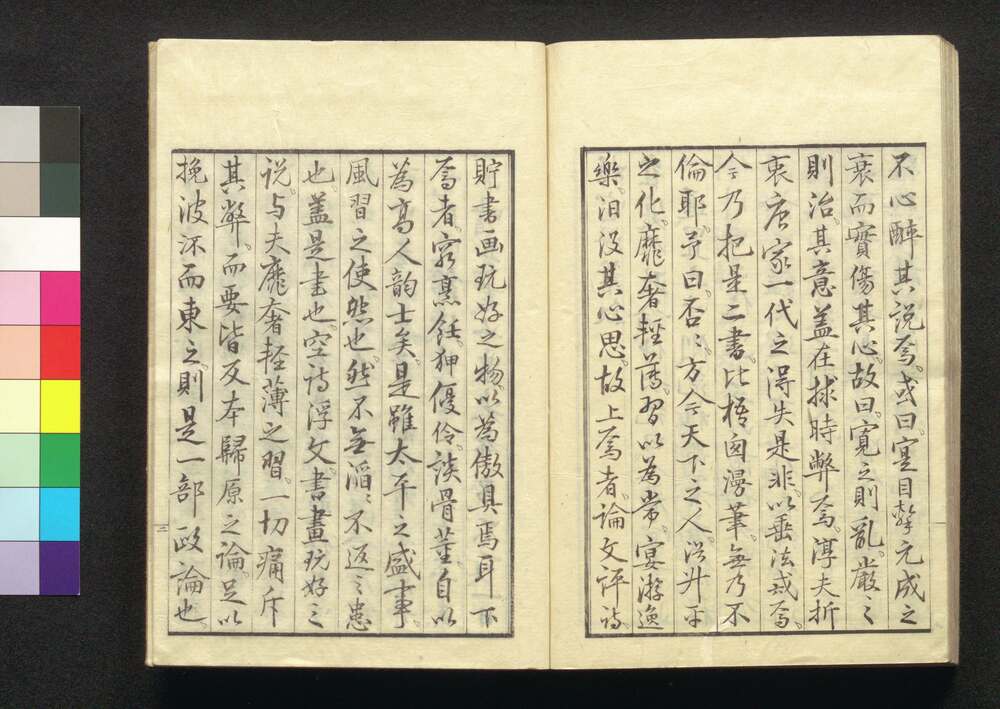 不心醉其説焉。或曰。寔目擊元成之
衰而實傷其心。故曰。寛之則亂。嚴之
則治。其意蓋在捄時弊焉。淳夫折
衷唐家一代之得失是非。以垂法戒焉。
今乃把是二書。比梧囱漫筆。無乃不
倫耶。予曰。否〻。方今天下之人。浴升平
之化。靡奢輕薄。習以為常。宴游逸
樂。汩没其心思。故上焉者。論文評詩。
貯書画玩好之物。以為傲具焉耳。下
焉者。窮烹飪。狎優伶。談骨董。自以
為高人韵士矣。是雖太平之盛事。
風習之使然也。然不無滔〻不返之患
也。蓋是書也。空詩浮文。書畫玩好之
説。与夫靡奢輕薄之習。一切痛斥
其弊。而要皆反本歸原之論。足以
挽波流而東之。則是一部政論也。